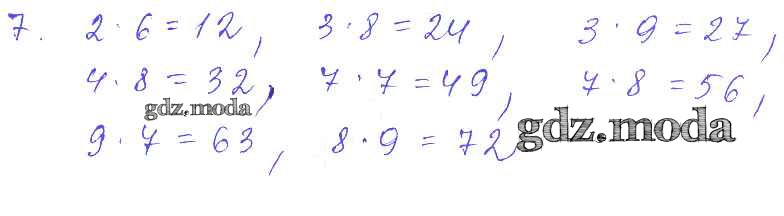 7. 2 · 6 = 12, 3 · 8 = 24, 3 · 9 = 27,
4 · 8 = 32, 7 · 7 = 49, 7 · 8 = 56,
gdz.moda
9 · 7 = 63, 8 · 9 = 72
gdz.moda